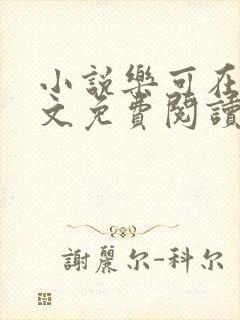 小說樂可在
文免費閱讀
謝麗尔-科尔